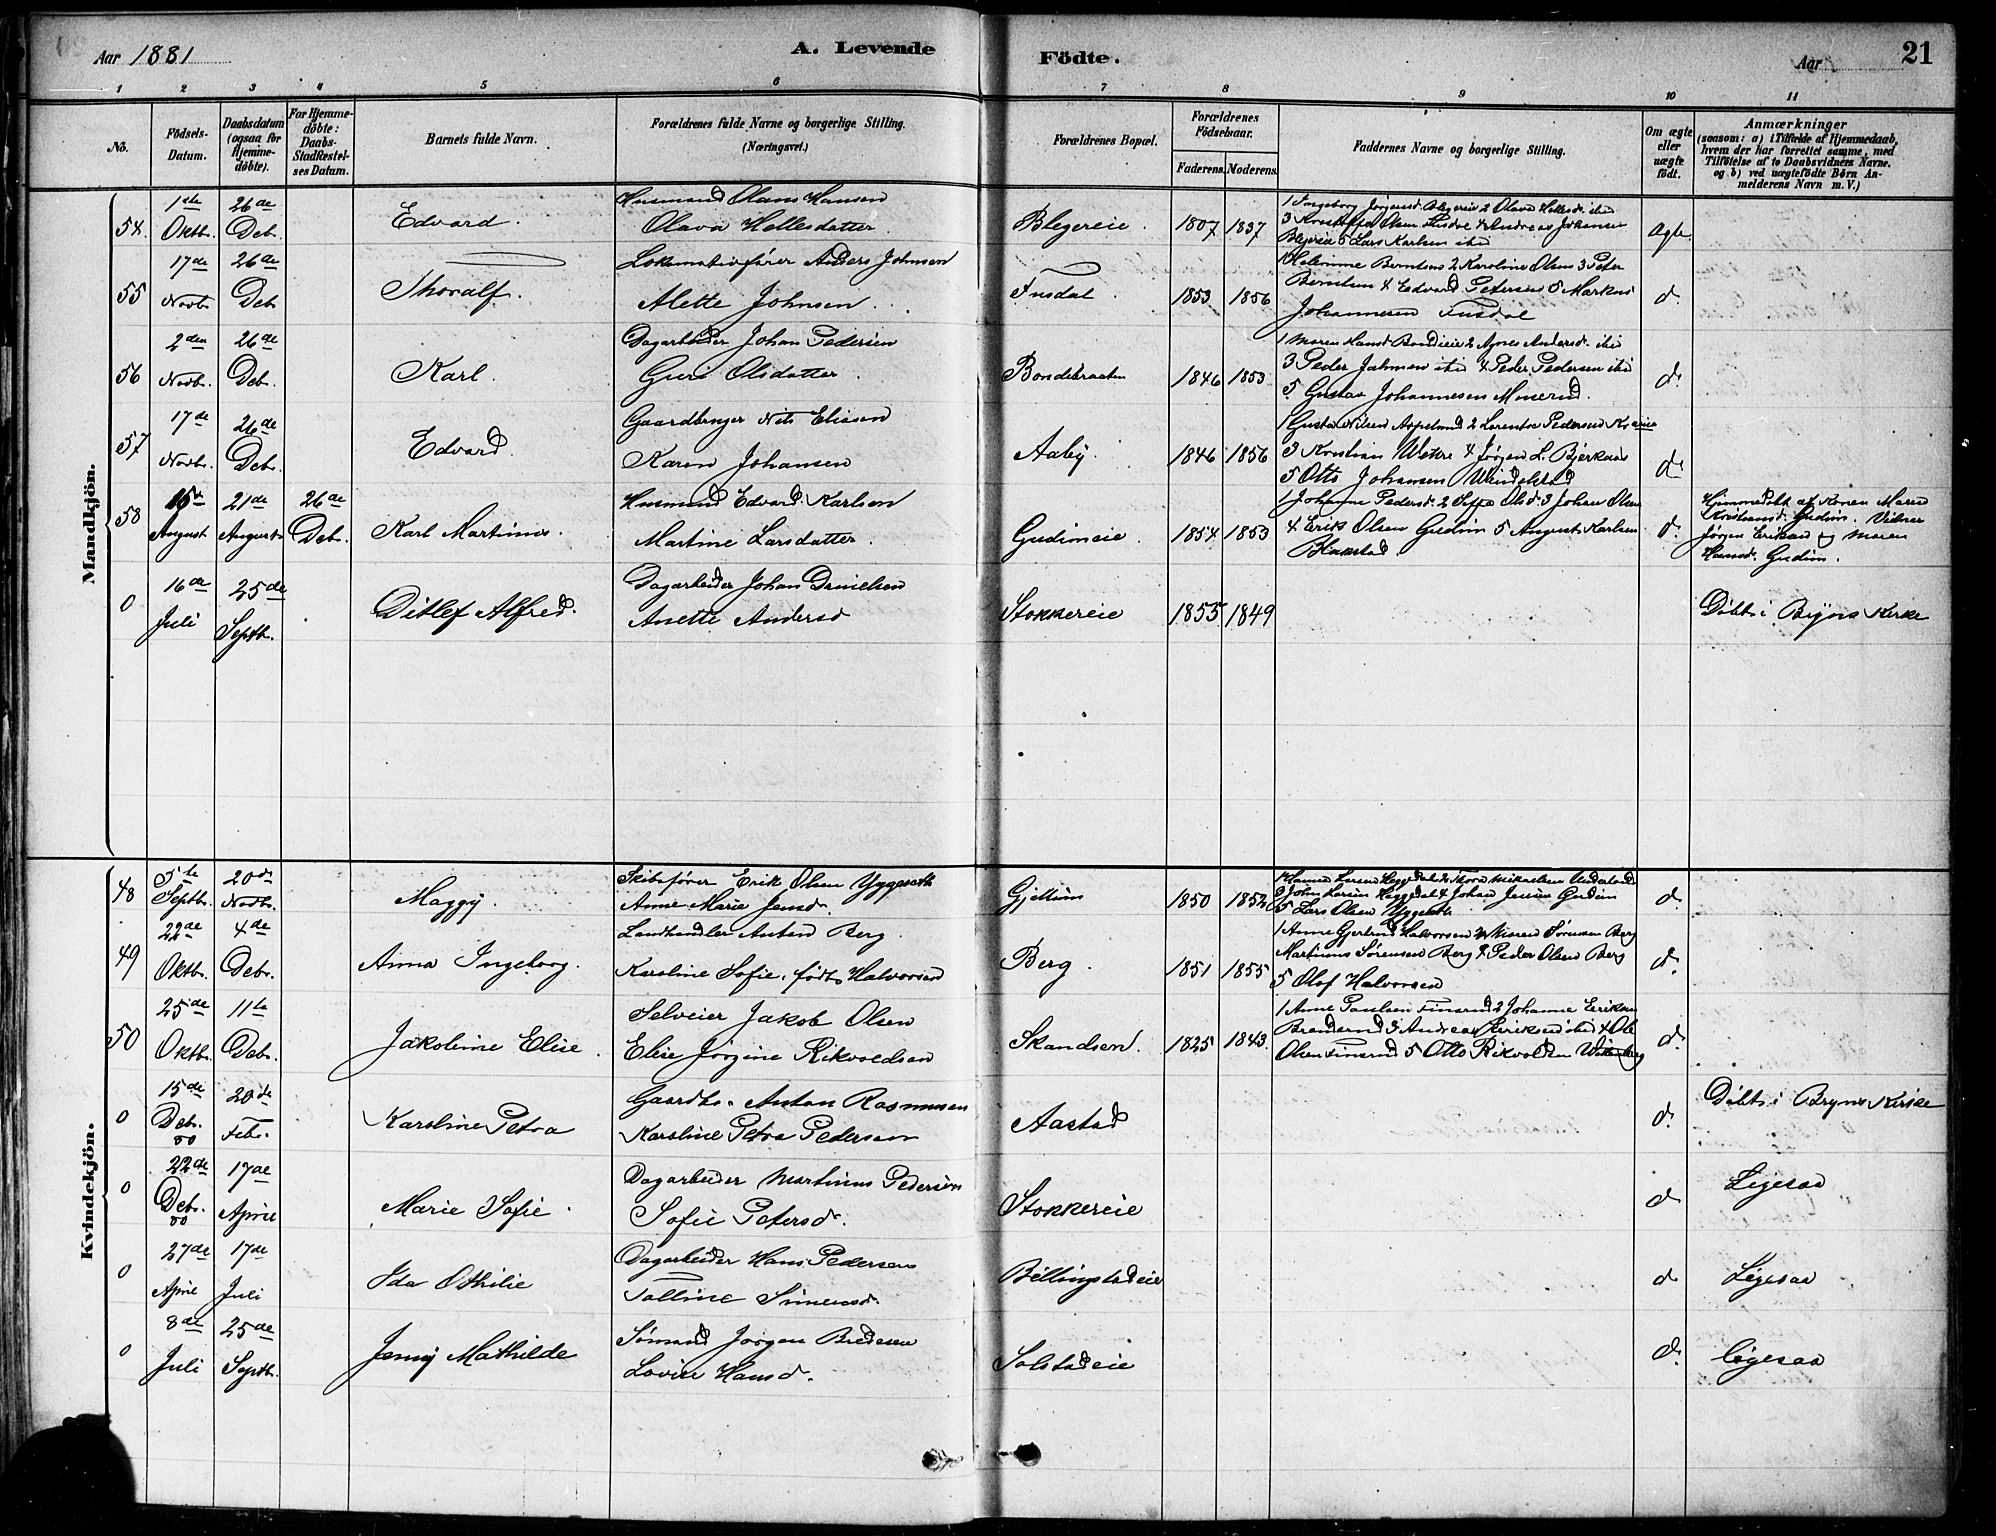 Aar 1881
A. Levende
Födte.
Aar
21
1 2 3 4 5 6 7 8 9 10 11
No.
Födsels-Datum.
Daabsdatum (ogsaa for Hjemme-döbte).
For Hjemme-döbte: Daabs-Stadfæstel-ses Datum.
Barnets fulde Navn.
Forældrenes fulde Navne og borgerlige Stilling. (Næringsvei.)
Forældrenes Bopæl.
Forældrenes Födselsaar.
Faderens. Moderens.
Faddernes Navne og borgerlige Stilling.
Om ægte eller uægte födt.
Anmærkninger
(saasom: a) i Tilfælde af Hjemmedaab, hvem der har forrettet samme, med Tilföielse af to Daabsvidners Navne. og b) ved uægtefödte Börn An-melderens Navn m. V.)
Mandkjön.
54. 1ste Oktb. 26de Deb. Edvard. Husmand Olaus Hansen
Olava Hellesdatter. Blegereie. 1807 1837 1 Ingeborg Jørgensd. Blegereie 2 Olava Hellesd. ibid
3 Kristoffer Olsen 4 Andreas Johansen
Blegereie 5 Lars Karlsen ibid Ægte.
55 17de Novb. 26de Deb. Thoralf. Lokomotivfører Anders Johnsen
Alette Johnsen. Fusdal. 1853 1856 Berntsen 2 Karoline Olsen 3 Peter
Berntsen 4 Edvard Petersen 5 Markus
Johannesen Fusdal d.
56 2den Novb. 26de Deb. Karl. Dagarbeider Johan Pedersen
Guri Olsdatter. Bondebraaten 1846 1853 1 Maren Hansd. Bondieie 2 Agnes Andersd. ibid
3 Peder Jahnsen ibid 4 Peder Pedersen ibid
5 Gustav Johannesen Muserud. d.
57 17de Novb. 26de Deb. Edvard. Gaardbruger Nils Eliasen
Karen Johansen Aaby. 1846 1856 1 Gusta Nilsen 2 Lorentse Pedersen
3 Kristian Wettre 4 Jørgen L. Bjerkaas
5 Otto Johansen Windelstad d.
58 15de August 21de August 26de Deb. Karl Martinus Husmand Edvard Karlsen
Martine Larsdatter. Gudimeie. 1854 1853 1 Johanne Pedersd. 2 Olsd. 3 Johan Olsen
4 Erik Olsen Gudim 5 August Karlsen
Blakstad. d. Hjemmedøbt af Konen Maren
Kristiansd. Gudim. Vidner
Jørgen Eriksen og Maren
Hansd. Gudim.
0 16de Juli 25de Septb. Ditlef Alfred. Dagarbeider Johan Danielsen
Anette Andersd Stokkereie 1855 1849 Døbt i Bryns Kirke
Kvindekjön.
48 5te Septb. 20de Novb. Maggy. Skibsfører Erik Olsen Yggeseth
Anne Marie Jensd. Gjellum 1850 1852 1 Hanna Larsen Heggedal 2 Thora Mikaelsen
3 John Larsen Heggedal 4 Johan Jensen Gudim
5 Lars Olsen Yggeseth d.
49 22de Oktb. 4de Deb. Anna Ingeborg. Landhandler Anton Berg.
Karoline Sofie, født Halvorsen Berg. 1851 1855 1 Anne Gjertrud Halvorsen 2 Maren Sørensen Berg
Martinus Sørensen Berg 4 Peder Olsen Berg
5 Olof Halvorsen d.
50 25de Oktb. 11te Deb. Jakobine Elise. Selveier Jakob Olsen
Elise Jørgine Rikvoldsen Skandsen. 1825 1843. 1 Anne Paulsen Finsrud 2 Johanne Eriksen
Brandsrud 3 Andreas Eriksen ibid 4 Ole
Olsen Finsrud 5 Otto Rikvoldsen d.
0 15de Deb. 80 20de Feb. Karoline Petra Gaardbr. Anton Rasmussen
Karoline Petra Pedersen Aastad d. Døbt i Bryns Kirke
0 22de Deb. 80 17de April Marie Sofie. Dagarbeider Martinus Pedersen
Sofie Petersd. Stokkereie d Ligesaa
0 27de April 17de Juli Ida Othilie Dagarbeider Hans Pedersen
Talline Simensd. Billingstadeie d Ligesaa
0 8de Juli 25de Septb. Jenny Mathilde Sømand Jørgen Bredesen
Lovise Hansd. Solstadeie d. Ligesaa